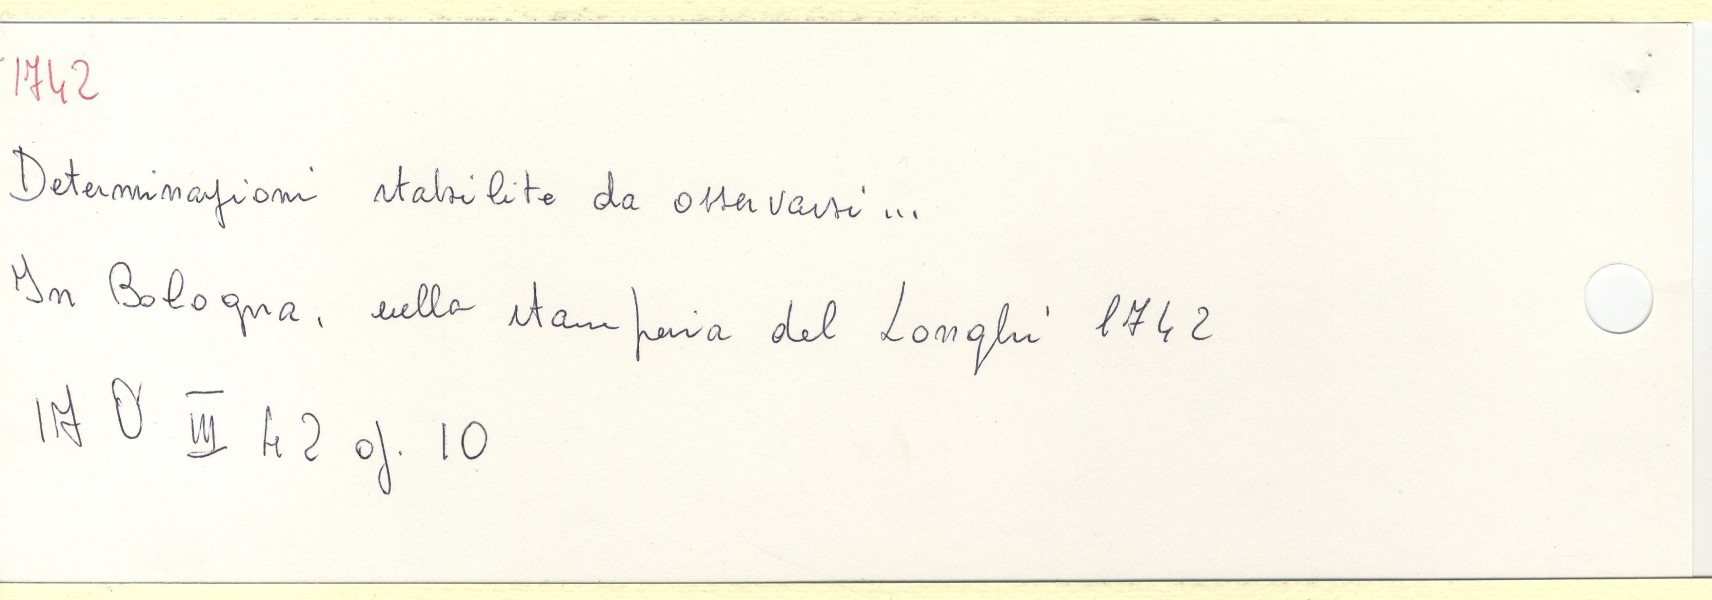 1742
Determinazioni stabilite da osservarsi...
In Bologna, nella stamperia del Longhi 1742
17 O III 42 op. 10